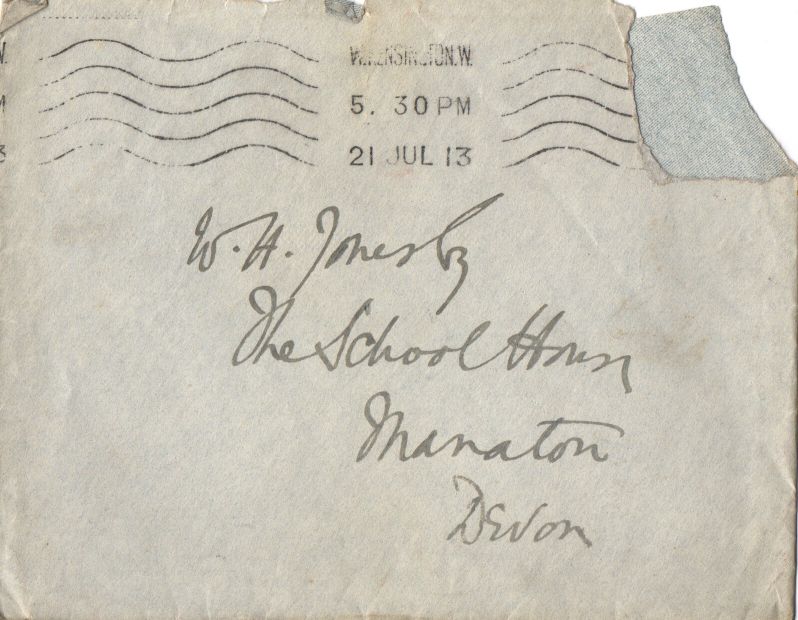 W.KENSINGTON.W.
5. 30 PM
21 JUL 13
W. H. Jones
The School House
Manaton
Devon